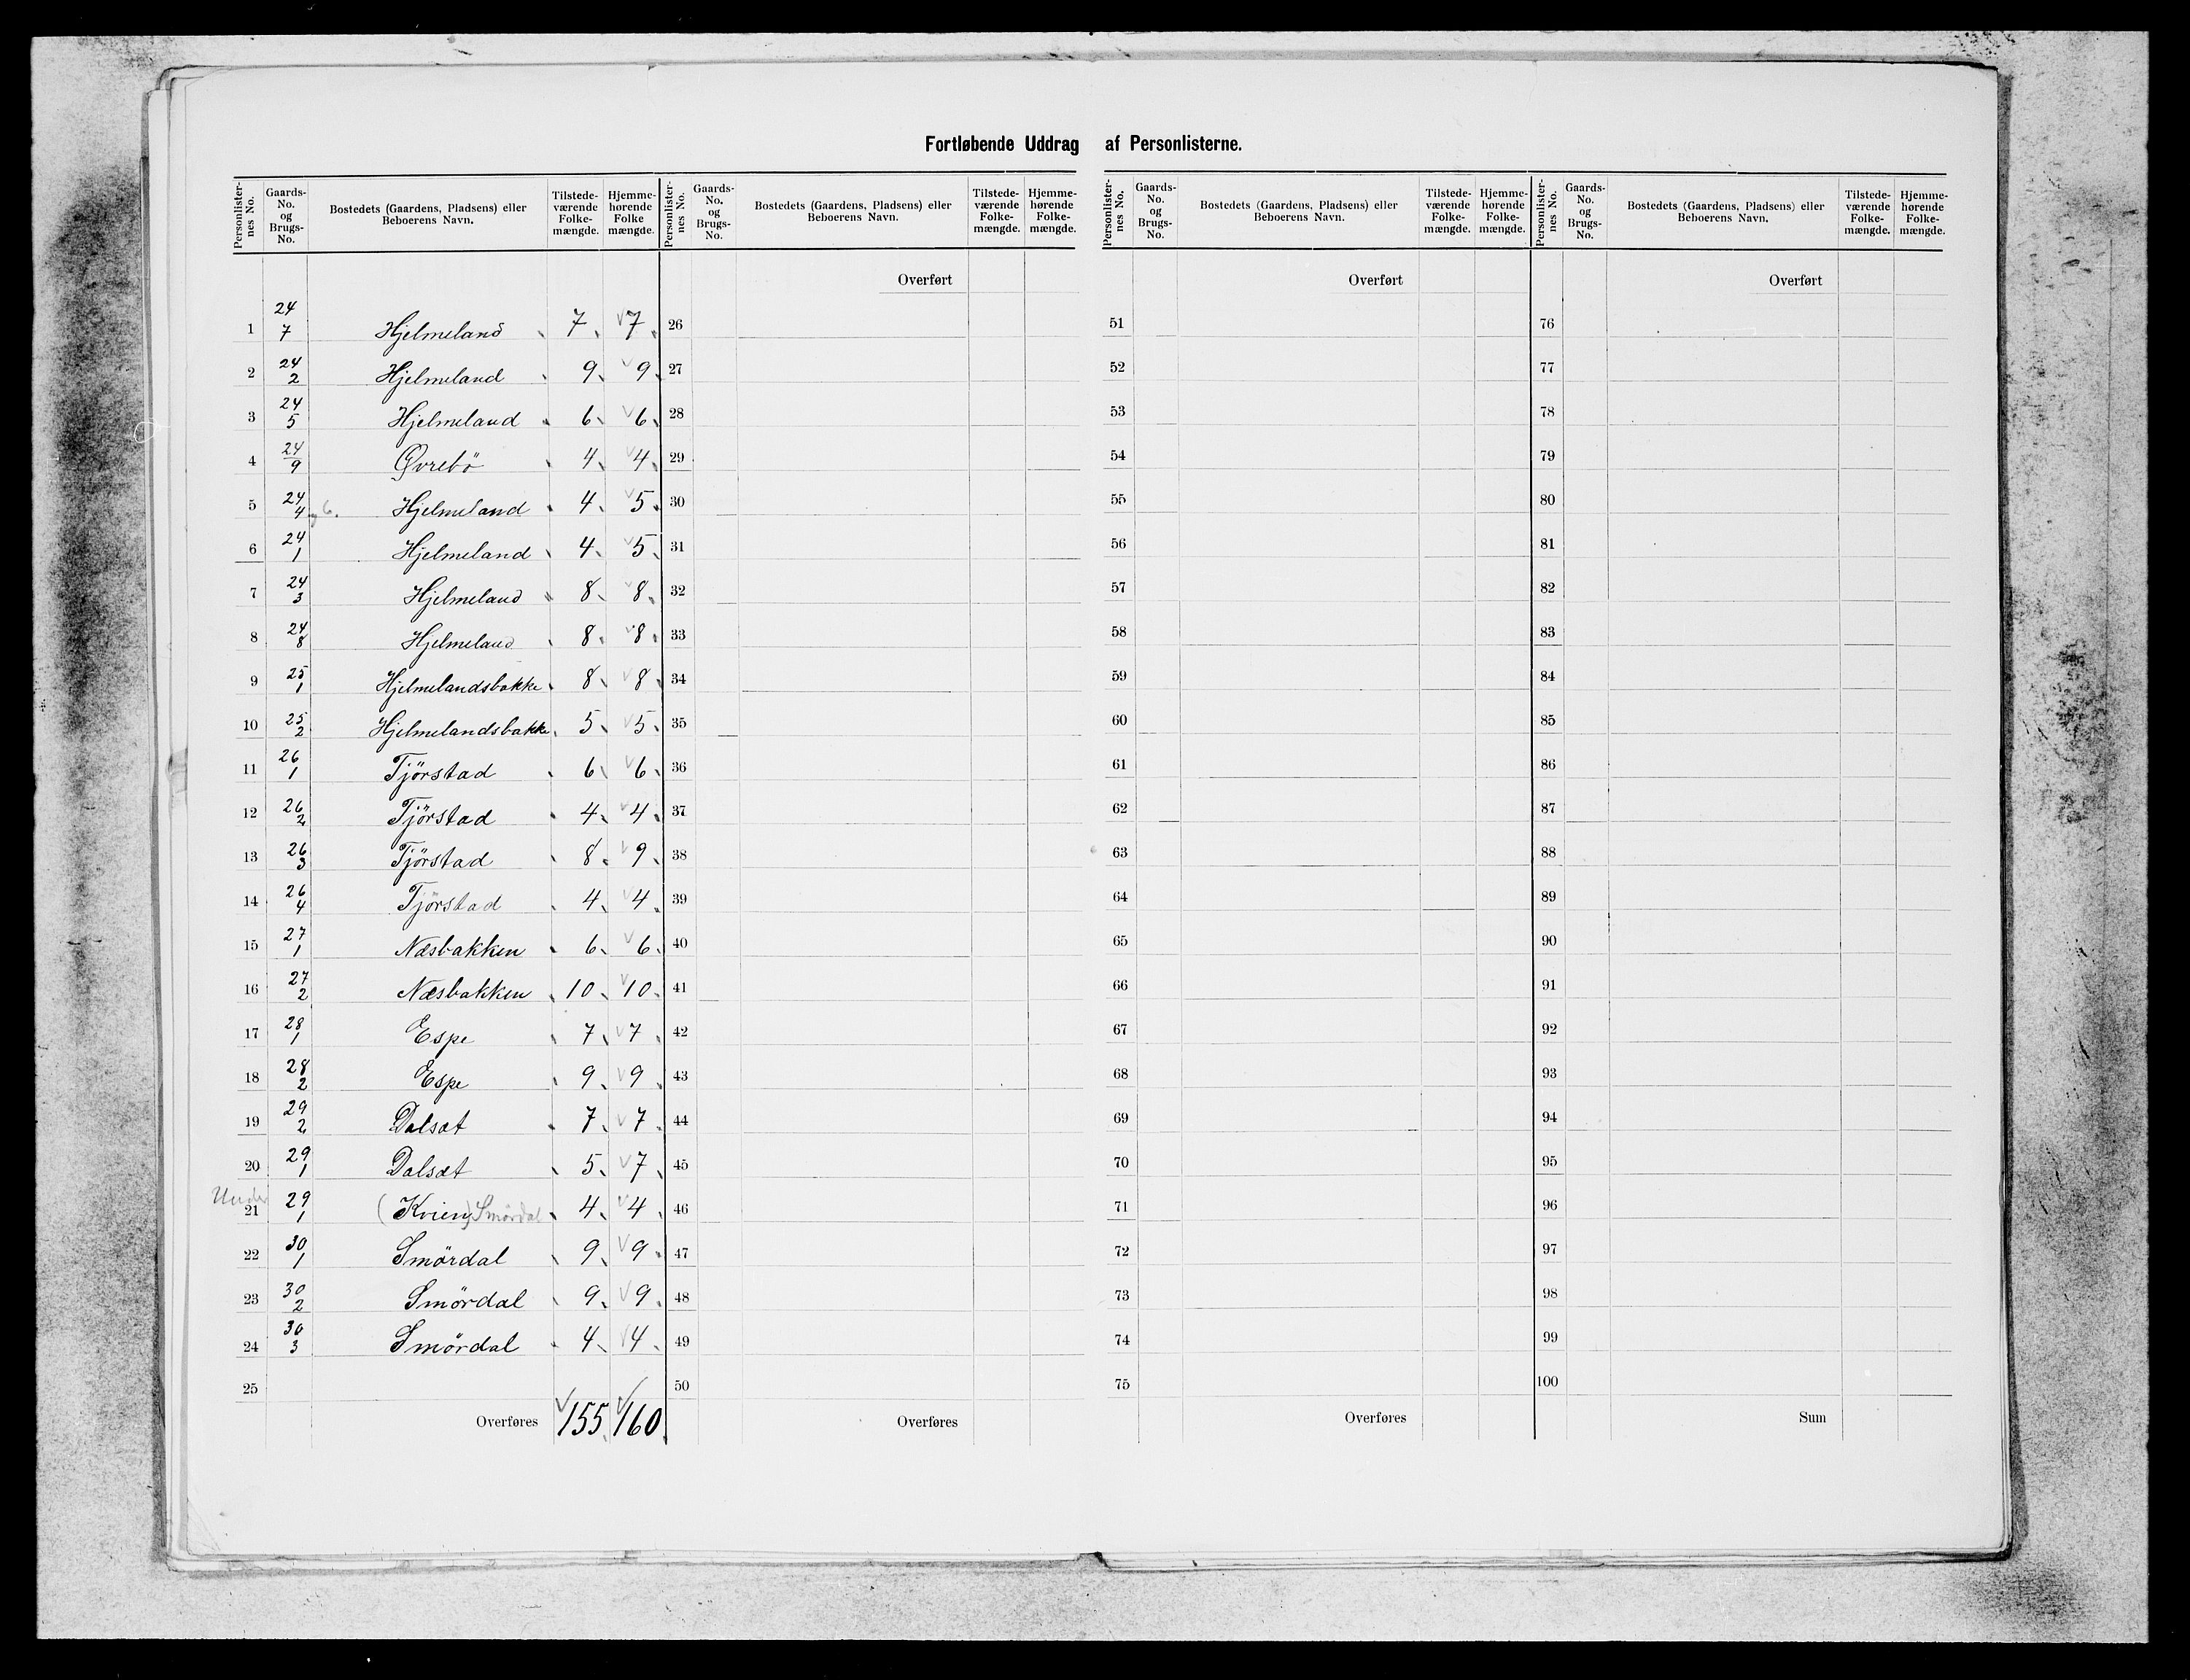 Fortløbende Uddrag af Personlisterne.
Personlister-nes No. | Gaards-No. og Brugs-No. | Bostedets (Gaardens, Pladsens) eller Beboerens Navn. | Tilstede-værende Folke-mængde. | Hjemme-hørende Folke mængde.
Personlister-nes No. | Gaards-No. og Brugs-No. | Bostedets (Gaardens, Pladsens) eller Beboerens Navn. | Tilstede-værende Folke-mængde. | Hjemme-hørende Folke-mængde.
Personlister-nes No. | Gaards-No. og Brugs-No. | Bostedets (Gaardens, Pladsens) eller Beboerens Navn. | Tilstede-værende Folke-mængde. | Hjemme-hørende Folke-mængde.
Personlister-nes No. | Gaards-No. og Brugs-No. | Bostedets (Gaardens, Pladsens) eller Beboerens Navn. | Tilstede-værende Folke-mængde. | Hjemme-hørende Folke-mængde.
Overført Overført Overført
1 24/7 Hjelmeland 7 7 26 51 76
2 24/2 Hjelmeland 9 9 27 52 77
3 24/5 Hjelmeland 6 6 28 53 78
4 24/9 Øvrebö 4 4 29 54 79
5 24/4 og 6. Hjelmeland 4 5 30 55 80
6 24/1 Hjelmeland 4 5 31 56 81
7 24/3 Hjelmeland 8 8 32 57 82
8 24/8 Hjelmeland 8 8 33 58 83
9 25/1 Hjelmelandsbakke 8 8 34 59 84
10 25/2 Hjelmelandsbakke 5 5 35 60 85
11 26/1 Tjörstad 6 6 36 61 86
12 26/2 Tjörstad 4 4 37 62 87
13 26/3 Tjörstad 8 9 38 63 88
14 26/4 Tjörstad 4 4 39 64 89
15 27/1 Næsbakken 6 6 40 65 90
16 27/2 Næsbakken 10 10 41 66 91
17 28/1 Espe 7 7 42 67 92
18 28/2 Espe 9 9 43 68 93
19 29/2 Dalsæt 7 7 44 69 94
20 29/1 Dalsæt 5 7 45 70 95
Under 21 29/1 (Kvien) Smördal 4 4 46 71 96
22 30/1 Smördal 9 9 47 72 97
23 30/2 Smördal 9 9 48 73 98
24 30/3 Smördal 4 4 49 74 99
25 50 75 100
Overføres 155 160 Overføres Overføres Sum